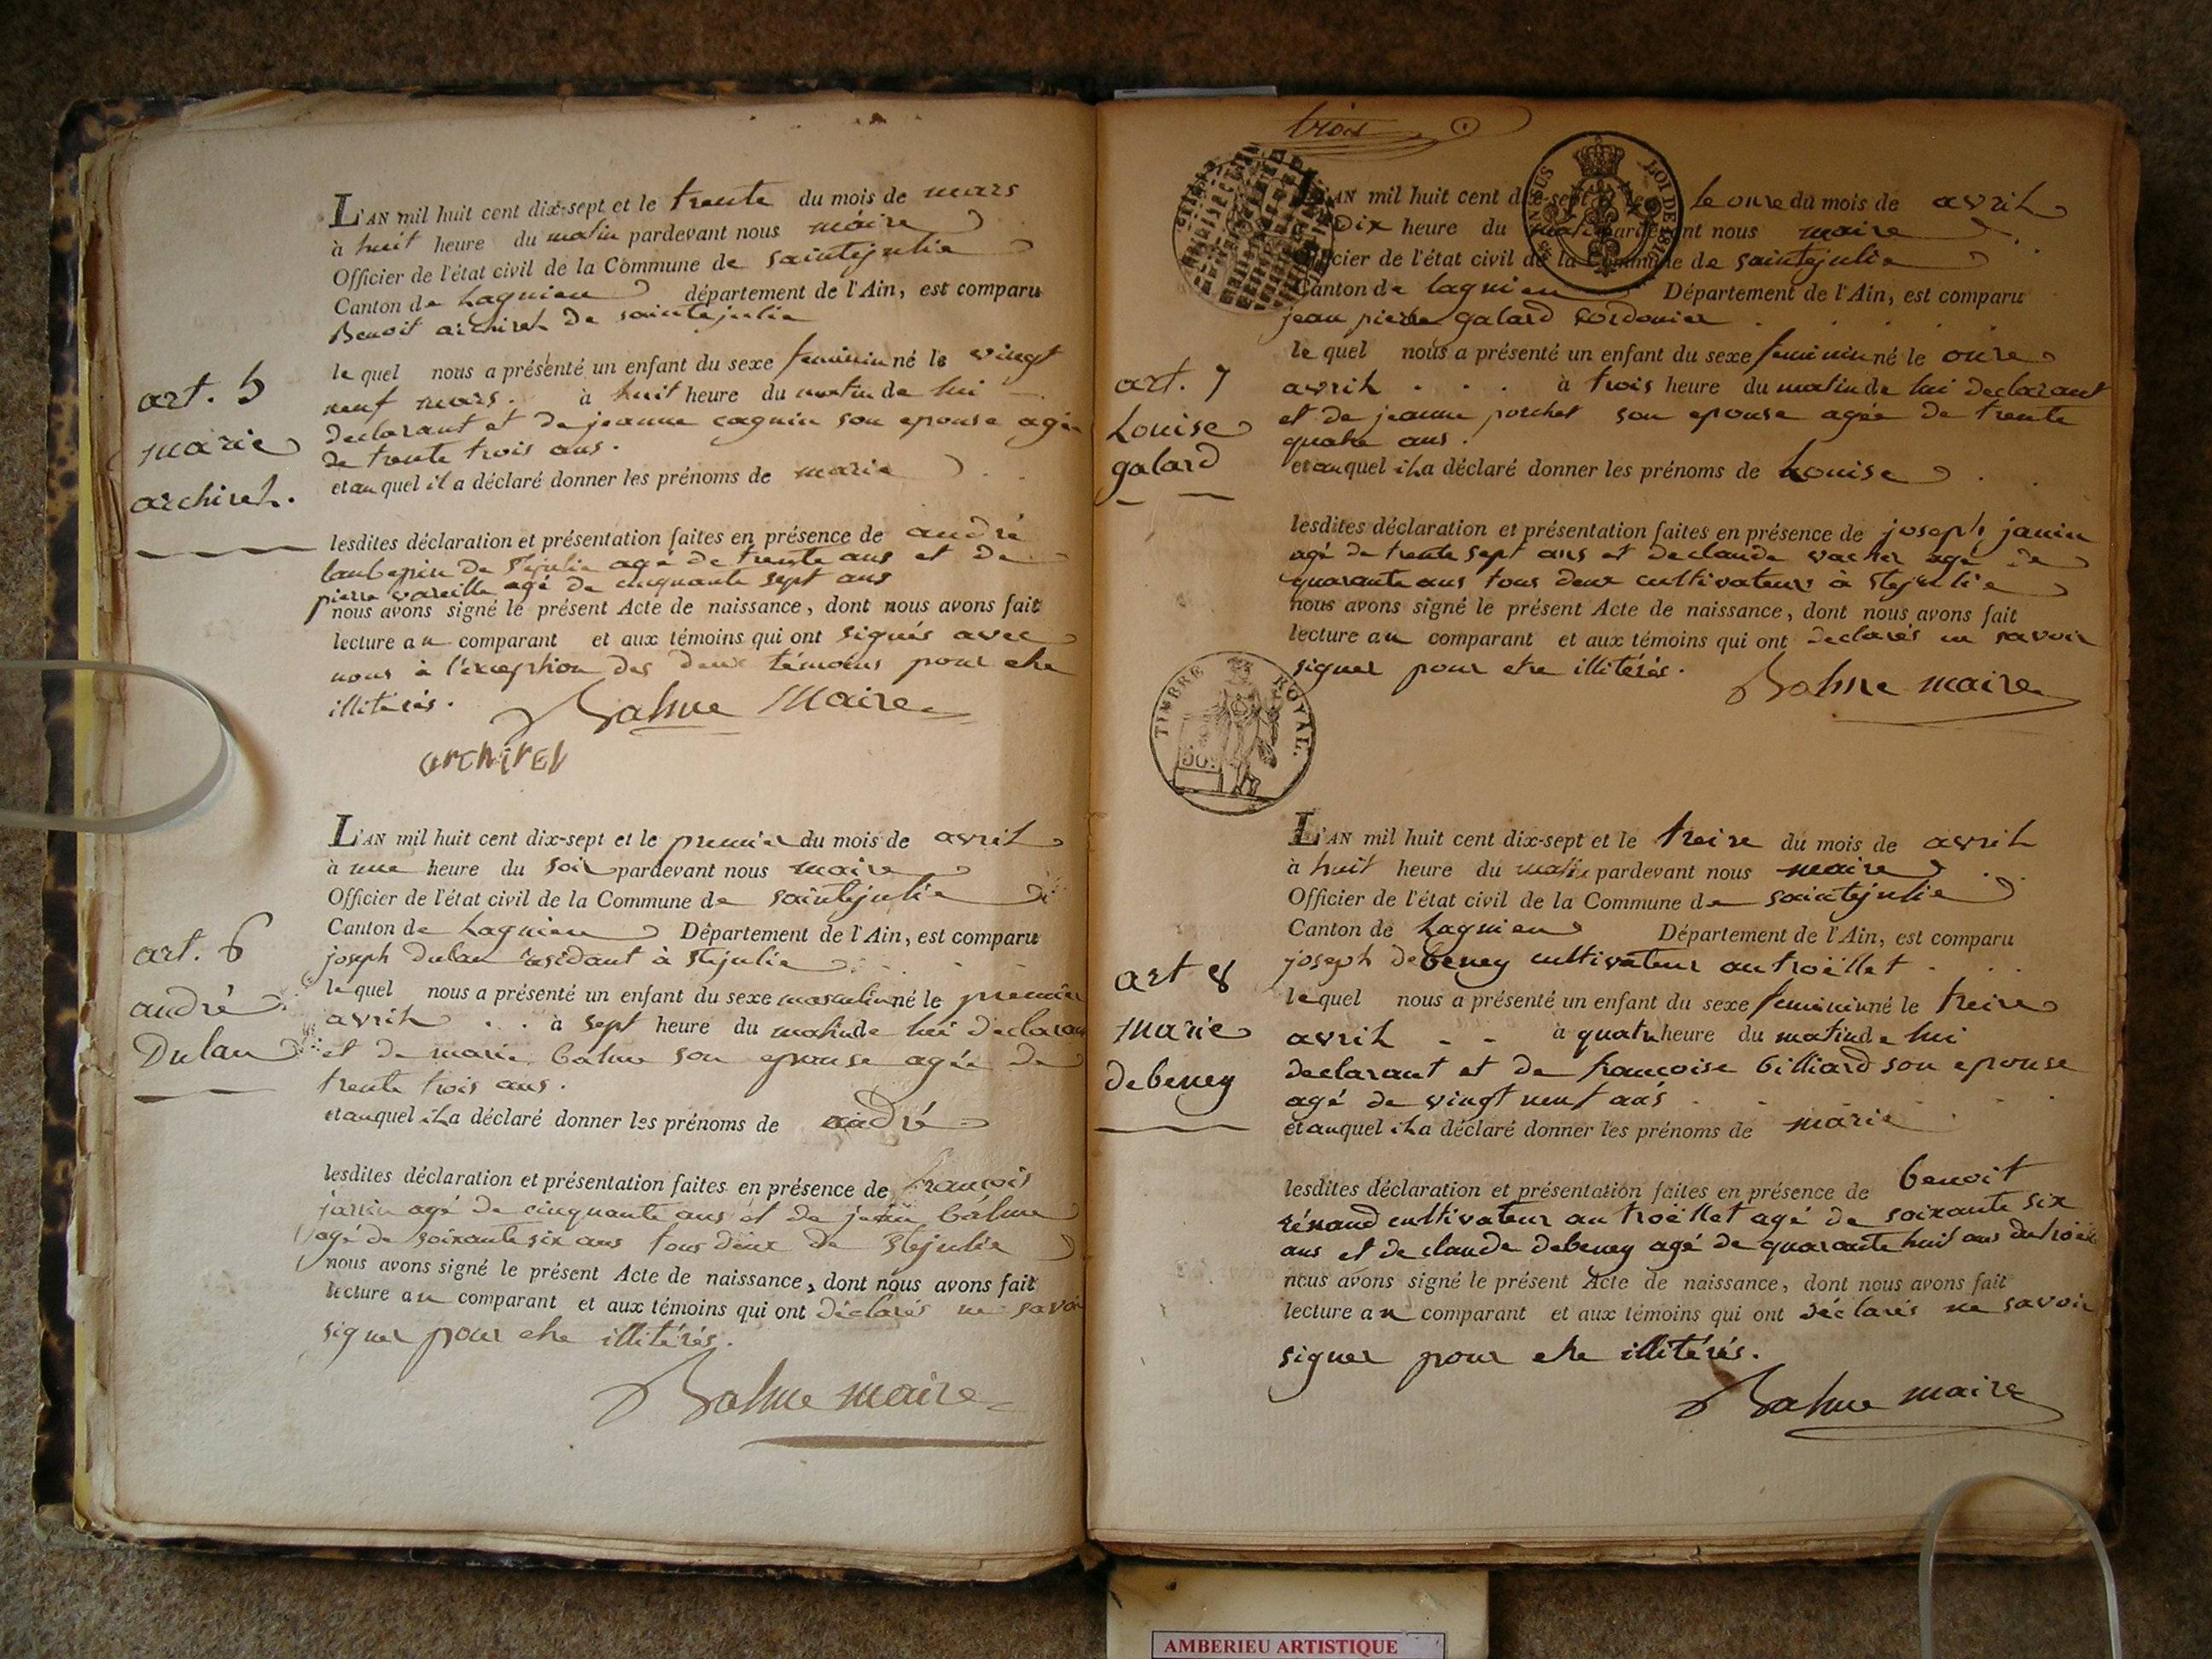 L'AN mil huit cent dix-sept et le trente du mois de mars
à huit heure du matin pardevant nous maire
Officier de l'état civil de la Commune de saintejulie
Canton de Lagnieu département de l'Ain, est comparu
Benoit archirel de saintejulie
le quel nous a présenté un enfant du sexe feminin né le vingt
neuf mars. à huit heure du matin de lui
declarant et de jeanne cagnin son epouse agée
de trente trois ans.
et au quel il a déclaré donner les prénoms de marie
art. 5
marie
archirel.
lesdites déclaration et présentation faites en présence de andré
laubepin de Stejulie agé de trente ans et de
pierre vareille agé de cinquante sept ans
nous avons signé le présent Acte de naissance, dont nous avons fait
lecture au comparant et aux témoins qui ont signés avec
nous à l'exception des deux témoins pour etre
illitérés. Balme Maire
archirel
L'AN mil huit cent dix-sept et le premier du mois de avril
à une heure du soir pardevant nous maire
Officier de l'état civil de la Commune de saintejulie
Canton de Lagnieu Département de l'Ain, est comparu
joseph Dulau residant à Stejulie
le quel nous a présenté un enfant du sexe masculin né le premier
avril . . à sept heure du matin de lui declarant
et de marie balme son epouse agée de
trente trois ans.
et auquel il a déclaré donner les prénoms de andré
art. 6
andré
Dulau
lesdites déclaration et présentation faites en présence de françois
janin agé de cinquante ans et de jean balme
agé de soixante six ans tous deux de Stejulie
nous avons signé le présent Acte de naissance, dont nous avons fait
lecture au comparant et aux témoins qui ont déclarés ne savoir
signer pour etre illitérés.
Balme maire
trois
L'AN mil huit cent dix-sept et le onze du mois de avril
Dix heure du matin pardevant nous maire
Officier de l'état civil de la Commune de saintejulie
Canton de lagnieu Département de l'Ain, est comparu
jean pierre galard cordonier
le quel nous a présenté un enfant du sexe feminin né le onze
avril . . . à trois heure du matin de lui declarant
et de jeanne porchet son epouse agée de trente
quatre ans.
et auquel il a déclaré donner les prénoms de Louise
art. 7
Louise
galard
lesdites déclaration et présentation faites en présence de joseph janin
agé de trente sept ans et de claude vacher agé de
quarante ans tous deux cultivateurs à Stejulie
nous avons signé le présent Acte de naissance, dont nous avons fait
lecture au comparant et aux témoins qui ont declarés ne savoir
signer pour etre illitérés. Balme maire
TIMBRE ROYAL.
L'AN mil huit cent dix-sept et le treize du mois de avril
à huit heure du matin pardevant nous maire
Officier de l'état civil de la Commune de saintejulie
Canton de Lagnieu Département de l'Ain, est comparu
joseph debeney cultivateur au troëllet
lequel nous a présenté un enfant du sexe feminin né le treize
avril - - à quatre heure du matin de lui
declarant et de françoise billiard son epouse
agé de vingt neuf ans
et auquel il a déclaré donner les prénoms de marie
art 8
marie
debeney
lesdites déclaration et présentation faites en présence de benoit
rénaud cultivateur au troëllet agé de soixante six
ans et de claude debeney agé de quarante huit ans du
nous avons signé le présent Acte de naissance, dont nous avons fait
lecture au comparant et aux témoins qui ont déclarés ne savoir
signer pour etre illitérés.
Balme maire
AMBERIEU ARTISTIQUE